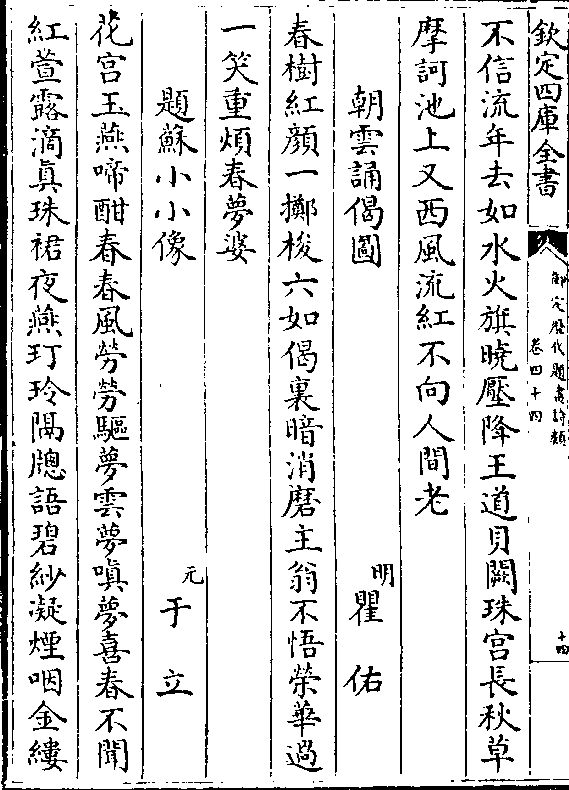 欽定四庫全書
御定歷代題畫詩類
卷四十四
十四
不信流年去如水火旗曉壓降王道貝闕珠宫長秋草
摩訶池上又西風流紅不向人間老
朝雲誦偈圖
明瞿佑
春樹紅顔一擲梭六如偈裏暗消磨主翁不悟榮華過
一笑重煩春夢婆
題蘇小小像
元于立
花宫玉燕啼酣春春風勞勞驅夢雲夢嗔夢喜春不聞
紅萱露滴真珠裙夜燕玎玲隔牕語碧紗凝煙咽金縷